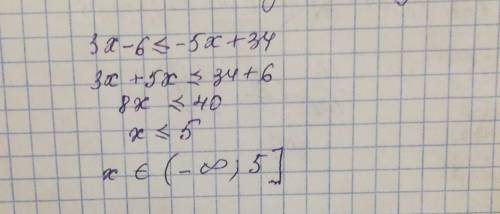 3x-6≤-5x+34
3x+5x≤34+6
8x ≤40
x≤5
x∈(-∞;5]